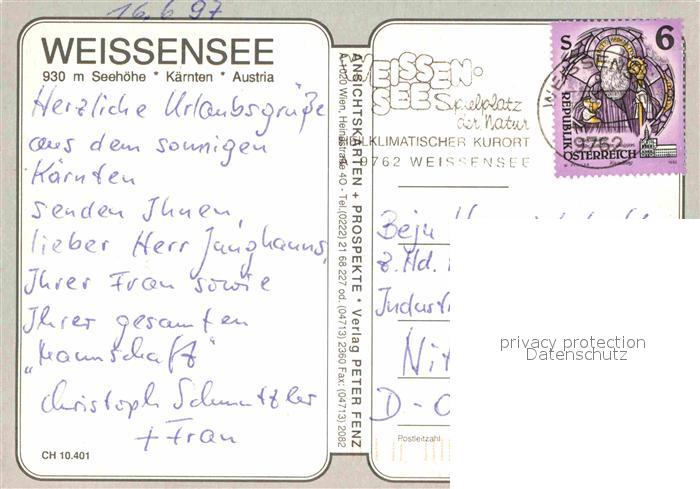 16.6.97
WEISSENSEE
930 m Seehöhe * Kärnten * Austria
Herzliche Urlaubsgrüße
aus dem sonnigen
Kärnten
senden Ihnen,
lieber Herr Junghanns,
Ihrer Frau sowie
Ihrer gesamten
"Mannschaft"
Christoph Schmutzler
+ Frau
CH 10.401
ANSICHTSKARTEN + PROSPEKTE * Verlag PETER FENZ
A-1020 Wien, Heinestraße 40 - Tel. (0222) 21 68 227 od. (04713) 2360 Fax: (04713) 2082
WEISSEN-
SEE Spielplatz
der Natur
HEILKLIMATISCHER KURORT
9762 WEISSENSEE
WEISSENSEE
9762
S 6
REPUBLIK
ÖSTERREICH
Beju
z. Hd.
Industr
Nit
D-O
Postleitzahl
privacy protection
Datenschutz